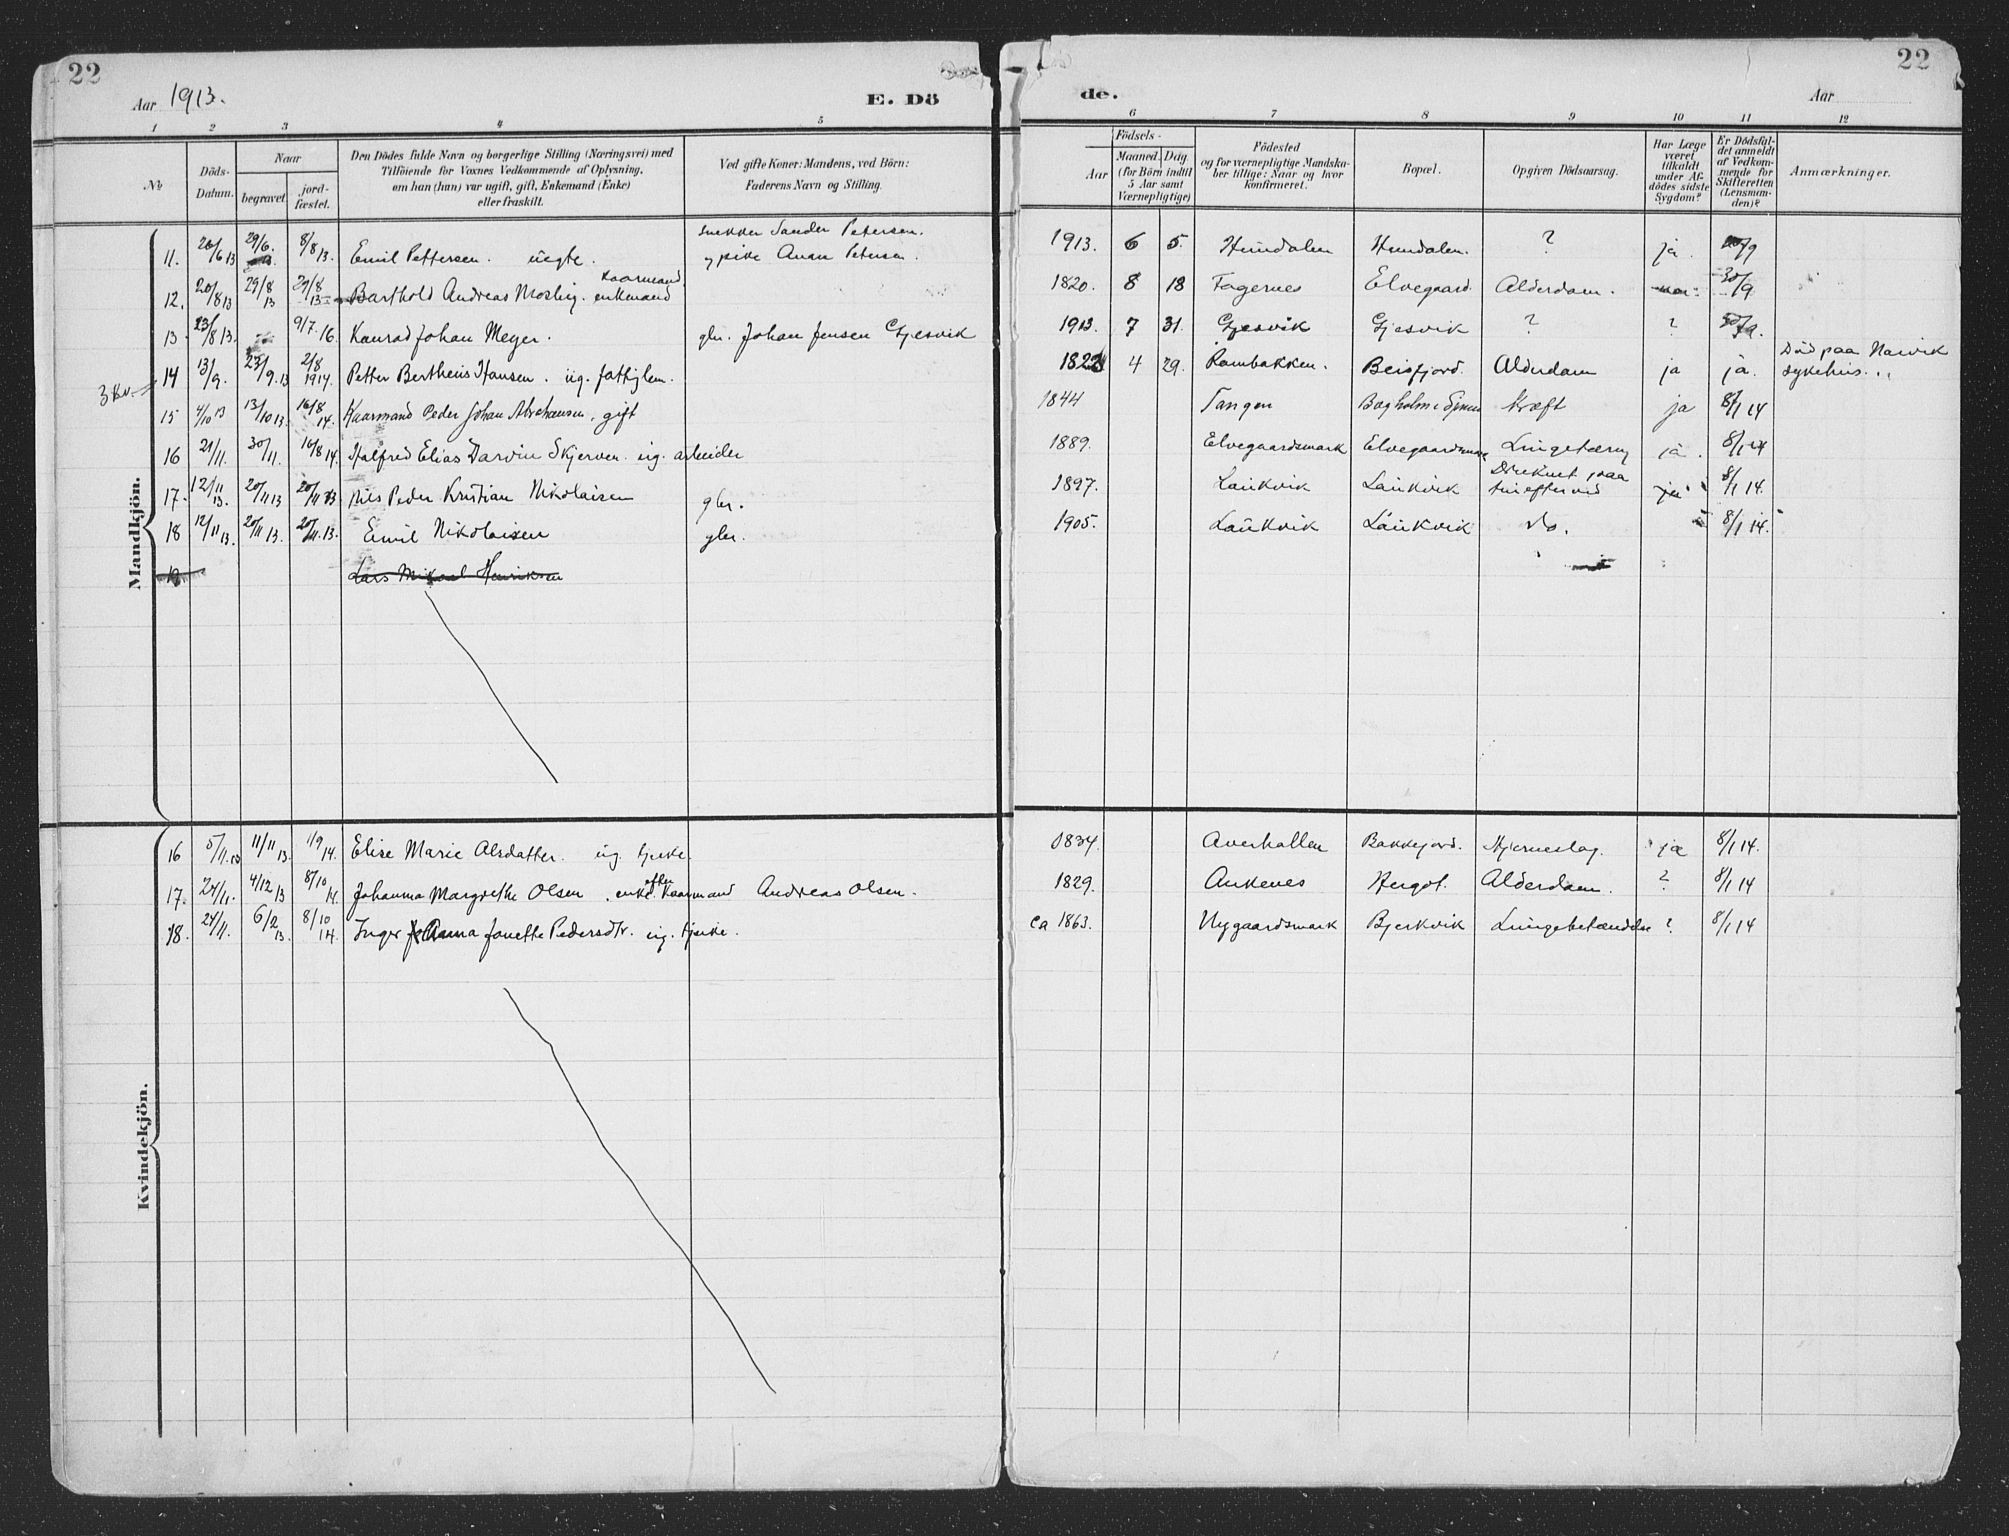 22
Aar 1913.
E. Dö
de.
Aar
22
1 2 3 4 5 6 7 8 9 10 11 12
№
Döds-Datum.
Naar
begravet.
jord-fæstet.
Den Dödes fulde Navn og borgerlige Stilling (Næringsvei) med
Tilföiende for Voxnes Vedkommende af Oplysning,
om han (hun) var ugift, gift, Enkemand (Enke)
eller fraskilt.
Ved gifte Koner: Mandens, ved Börn:
Faderens Navn og Stilling.
Födsels-
Aar
Maaned. Dag.
(for Börn indtil
5 Aar samt
Værnepligtige)
Födested
og for værnepligtige Mandska-
ber tillige: Naar og hvor
konfirmeret.
Bopæl.
Opgiven Dödsaarsag.
Har Læge
været
tilkaldt
under Af-
dödes sidste
Sygdom?
Er Dödsfal-
det anmeldt
af Vedkom-
mende for
Skifteretten
(Lensman-
den)?
Anmærkninger.
Mandkjön.
11. 20/6 13 29/6. 8/8 13. Emil Pettersen. uegte. snekker Sander Petersen. 1913. 6 5. Hundalen Hundalen. ? ja. 30/9
og pike Anna Petersen.
12. 20/8 13 29/8 13 29/8 13 Barthold Andreas Mosling. enkemand kaarmand 1820. 8 18 Fagernes Elvegaard Alderdom. 30/9
13. 23/8 13. 9/7. 16. Konrad Johan Meyer. gbr. Johan Jensen Gjesvik 1913. 7 31. Gjesvik Gjesvik ? ? 30/9.
3 Kv.
14 13/9. 23/9. 13 2/8 1914. Petter Bertheus Hansen. ug. fattiglem. 1822 4 29. Rombakken. Beisfjord. Alderdom ja ja. Död paa Narvik
sykehus.
15 4/10 13 13/10 13. 16/8 14. Kaarmand Peder Johan Abrahamsen, gift 1844 Tangen Bogholm Kræft ja 8/1 14
16 21/11. 30/11. 16/8 14. Halfred Elias Darvin Skjerven. ug. arbeider 1889. Elvegaardsmark Elvegaardsmark Lungetæring ja. 8/1 14
17. 12/11 13. 20/11 13 20/11 13 Nils Peder Kristian Nikolaisen gbr. 1897. Laukvik Laukvik Druknet paa 8/1 14.
18 12/11 13. 20/11 13. 20/11. 13. Emil Nikolaisen gbr. 1905. Laukvik Laukvik do. 8/1 14.
19 Lars Mikael Henriksen
Kvindekjön.
16 5/11. 13 11/11 13. 1/9 14. Elise Marie Alsdatter. ug. tjente. 1834. Averhallen Bakkejord. Hjerneslag. ja 8/1 14.
17. 24/11. 4/12 13 8/10 14. Johanna Margrethe Olsen. enke efter Kaarmand Andreas Olsen. 1829. Ankenes Hergot. Alderdom. ? 8/1 14
18. 24/11. 6/2 13 8/10 14. Inger Anna Janette Pedersdtr. ug. tjente. ca 1863. Nygaardsmark Bjerkvik Lungebetændelse ? 8/1 14